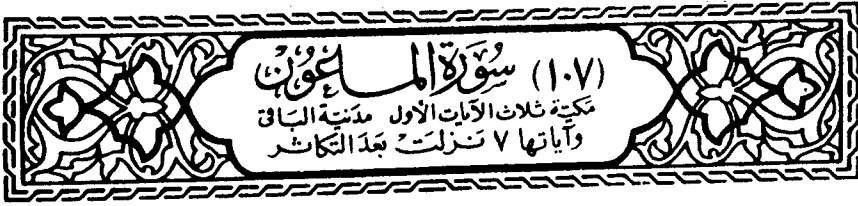 (١٠٧) سُورَةُ المَاعُون
مَكيّة ثلاث الآيات الأول مدَنية البَاقي
وآياتها ٧ نَزلَتْ بَعدَ التكاثر